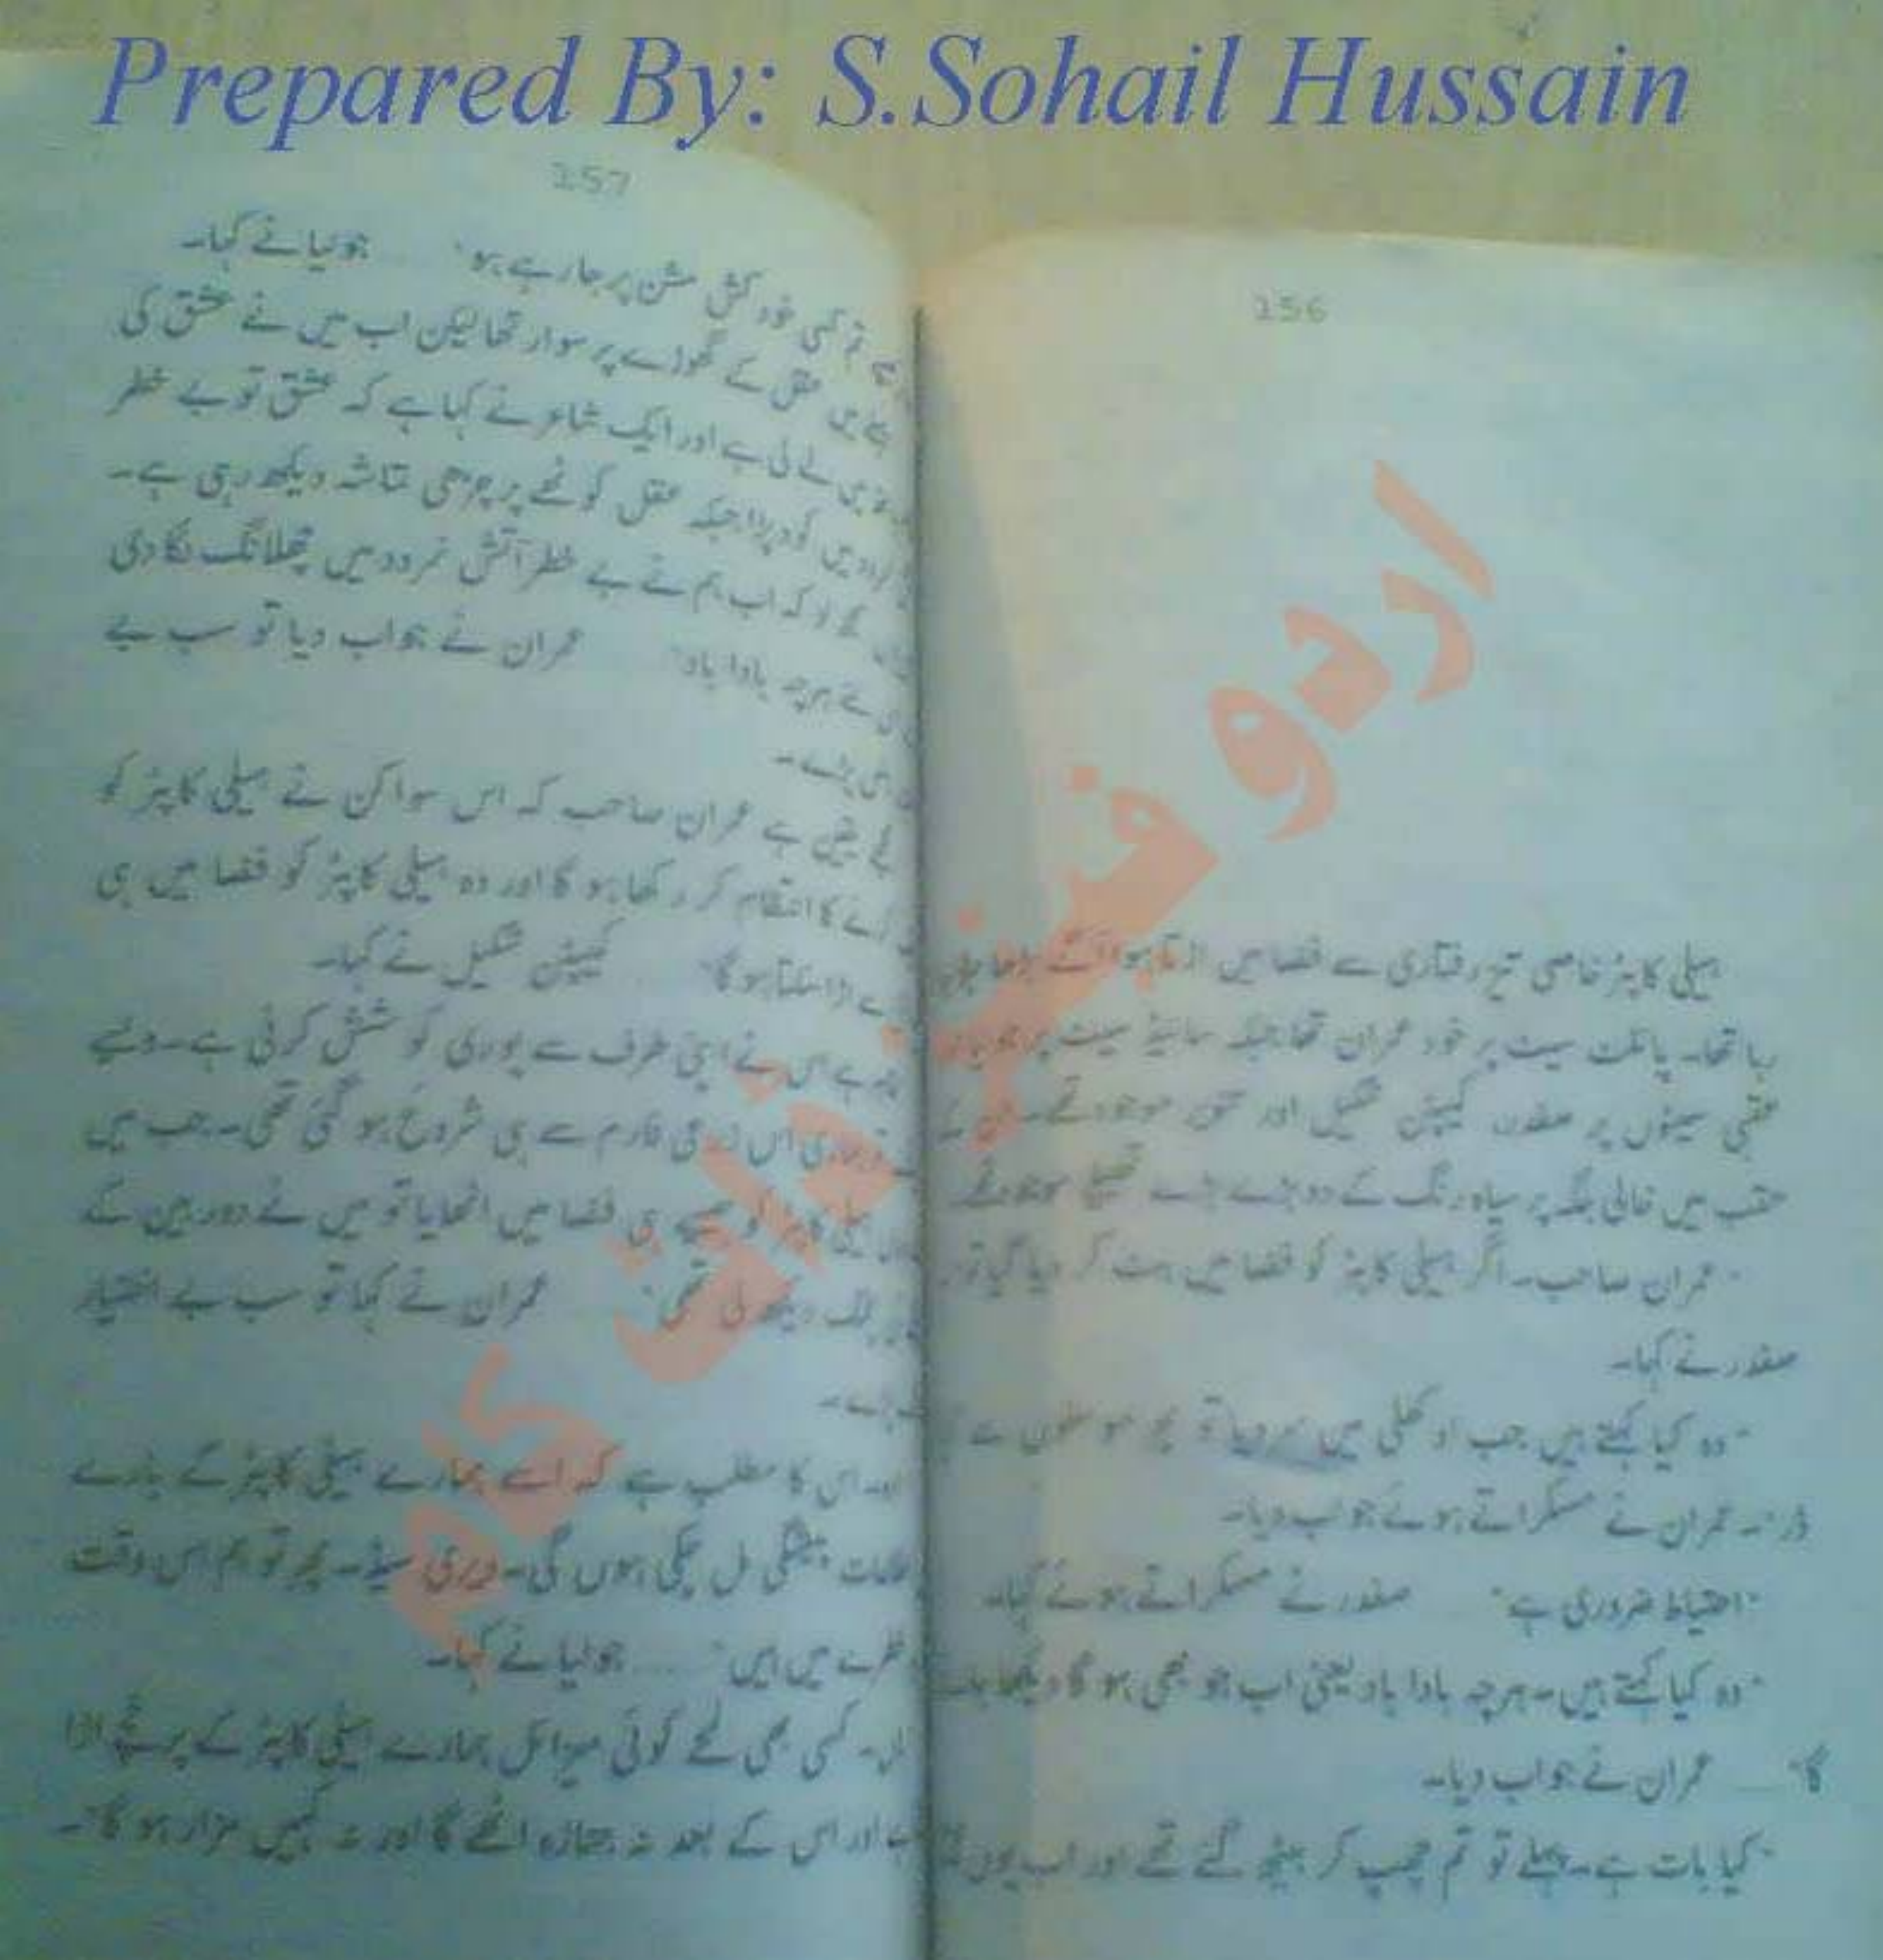 Prepared By: S.Sohail Hussain
156
ہیلی کاپٹر خاصی تیز رفتاری سے فضا میں اڑتا ہوا آگے بڑھا
رہا تھا۔ پائلٹ سیٹ پر خود عمران تھا جبکہ سائیڈ سیٹ پر جولیا
عقبی سیٹوں پر صفدر، کیپٹن شکیل اور تنویر موجود تھے۔ ان کے
عقب میں خالی جگہ پر سیاہ رنگ کے دو بڑے بڑے تھیلے موجود تھے
"عمران صاحب۔ اگر ہیلی کاپٹر کو فضا میں ہٹ کر دیا گیا تو
صفدر نے کہا۔
"وہ کیا کہتے ہیں جب اوکھلی میں سر دیا تو پھر موسلوں سے
ڈر"۔ عمران نے مسکراتے ہوئے جواب دیا۔
"احتیاط ضروری ہے" ..... صفدر نے مسکراتے ہوئے کہا۔
"وہ کیا کہتے ہیں۔ ہرچہ بادا باد یعنی اب جو بھی ہو گا دیکھا جائے
گا" ..... عمران نے جواب دیا۔
"کیا بات ہے۔ پہلے تو تم چھپ کر بیٹھ گئے تھے اور اب یوں
157
تم کسی خود کش مشن پر جا رہے ہو" ..... جولیا نے کہا۔
میں عقل کے گھوڑے پر سوار تھا لیکن اب میں نے عشق کی
لے لی ہے اور ایک شاعر نے کہا ہے کہ عشق تو بے خطر
میں کود پڑا جبکہ عقل کوٹھے پر چڑھی تماشہ دیکھ رہی ہے۔
کہ اب ہم نے بے خطر آتش نمرود میں چھلانگ لگا دی
ہرچہ بادا باد" ..... عمران نے جواب دیا تو سب بے
پڑے۔
یقین ہے عمران صاحب کہ اس سواکن نے ہیلی کاپٹر کو
کا انتظام کر رکھا ہو گا اور وہ ہیلی کاپٹر کو فضا میں ہی
سے اڑا سکتا ہو گا" ..... کیپٹن شکیل نے کہا۔
اس نے اپنی طرف سے پوری کوشش کرنی ہے۔ ویسے
اس زرعی فارم سے ہی شروع ہو گئی تھی۔ جب میں
ہیلی کاپٹر کو جیسے ہی فضا میں اٹھایا تو میں نے دوربین کے
دیکھ لی تھی" ..... عمران نے کہا تو سب بے اختیار
پڑے۔
اوہ۔ اس کا مطلب ہے کہ اسے ہمارے ہیلی کاپٹر کے بارے
پیشگی مل چکی ہوں گی۔ ویری سیڈ۔ پھر تو ہم اس وقت
خطرے میں ہیں" ..... جولیا نے کہا۔
کسی بھی لمحے کوئی میزائل ہمارے ہیلی کاپٹر کے پرخچے اڑا
اور اس کے بعد نہ جنازہ اٹھے گا اور نہ کہیں مزار ہو گا"۔
اردو فینز ڈاٹ کام